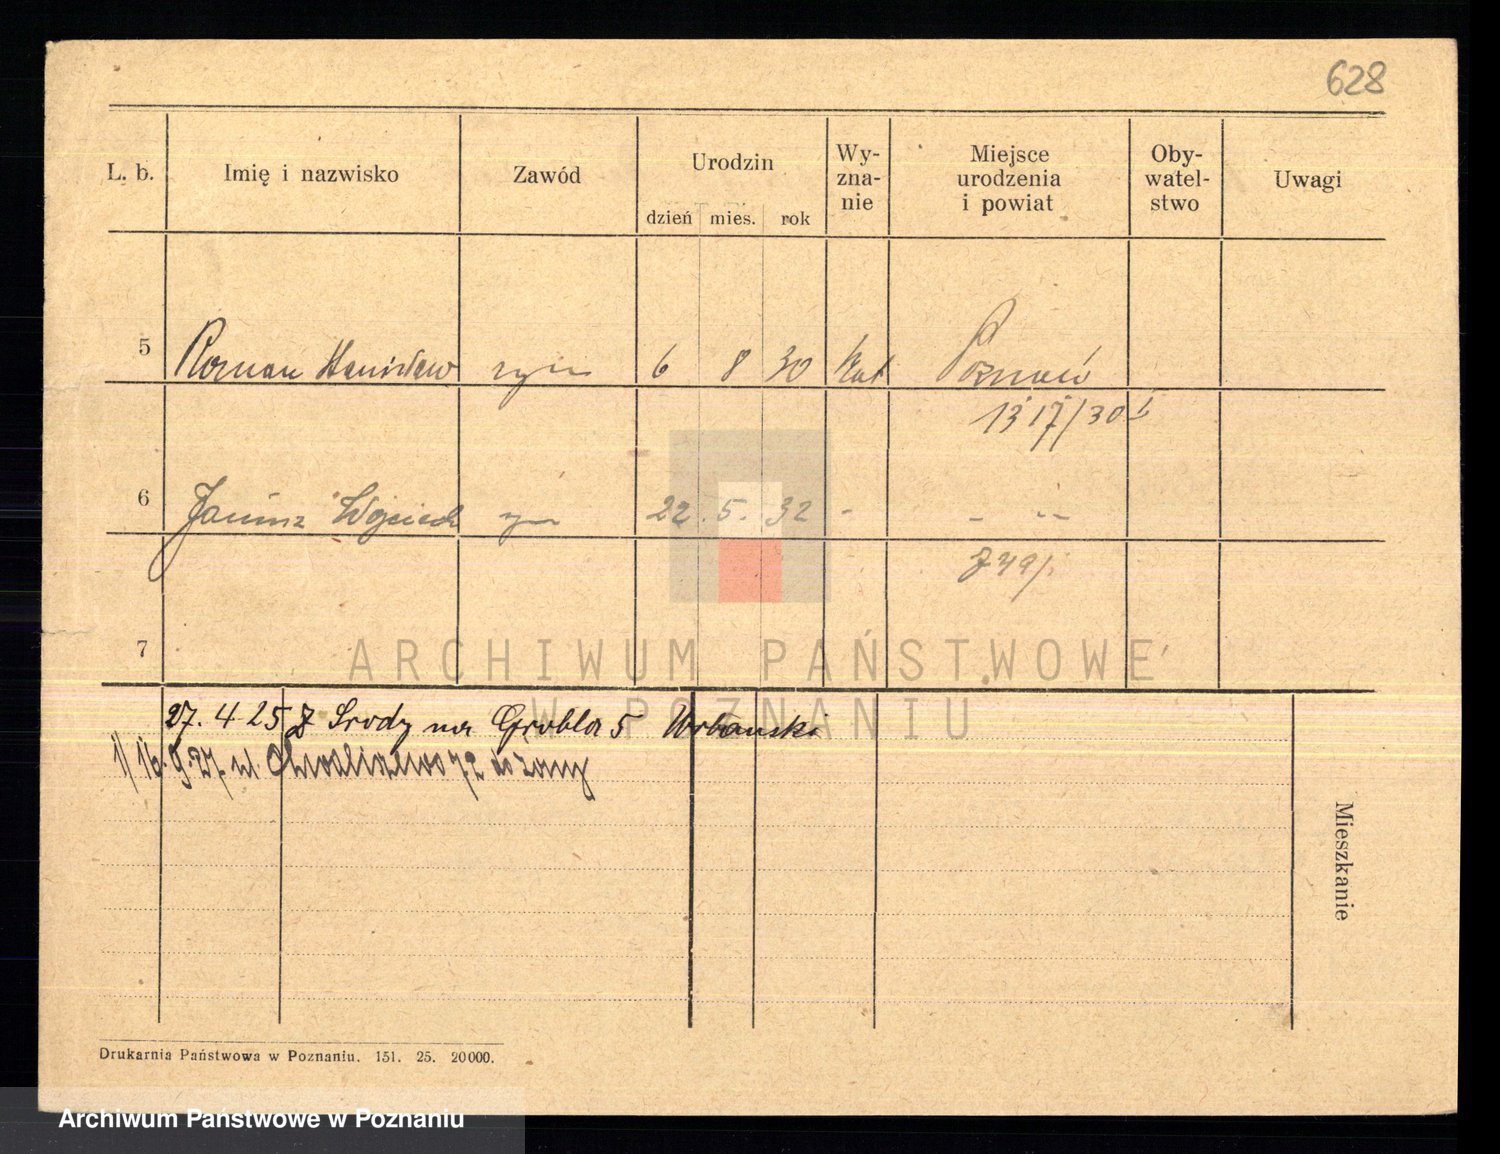 628
L. b. Imię i nazwisko Zawód Urodzin dzień mies. rok Wy- zna- nie Miejsce urodzenia i powiat Oby- watel- stwo Uwagi
5 Roman Stanisław syn 6 8 30 kat Poznań
1317/30
6 Janusz Wojciech syn 22. 5. 32 - - - -
749/
7
ARCHIWUM PAŃSTWOWE
W POZNANIU
27. 4 25 Z Środy na Grobla 5 Urbański
1/ 16. 9. 27. ul. Chwaliszewo 72 do żony
Mieszkanie
Drukarnia Państwowa w Poznaniu. 151. 25. 20000.
Archiwum Państwowe w Poznaniu